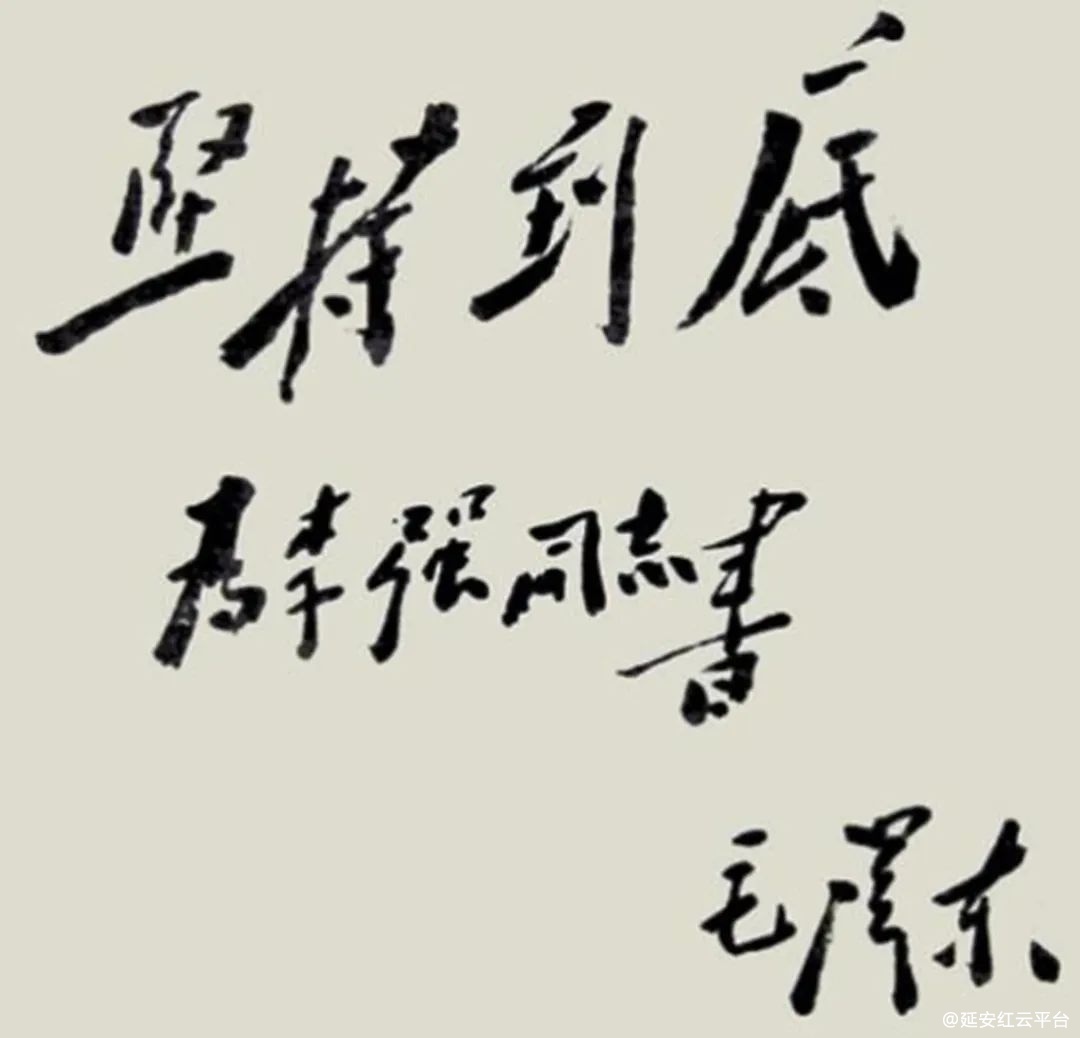 坚持到底
为李强同志書
毛泽东
@延安红云平台